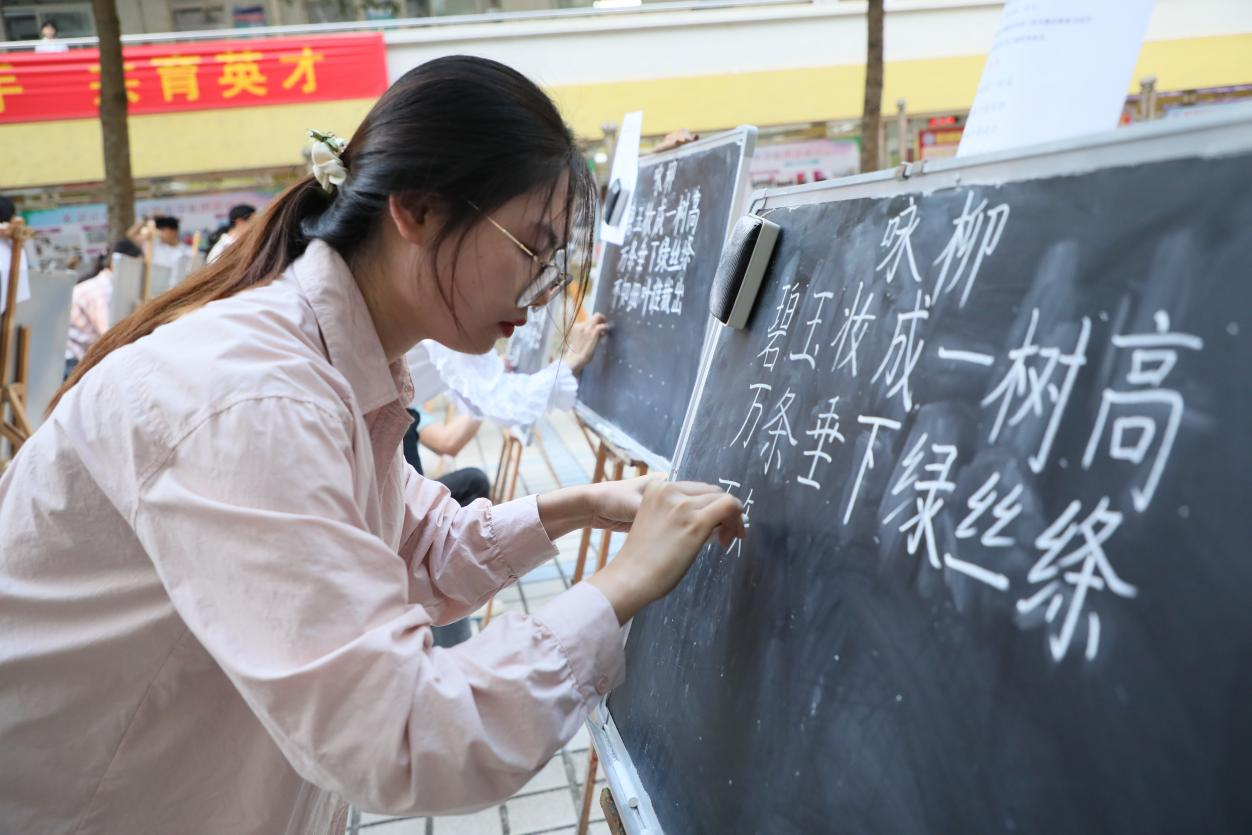 育英才
咏柳
玉妆成一树高
万条垂下绿丝绦
不知细叶谁裁出
咏柳
碧玉妆成一树高
万条垂下绿丝绦
不